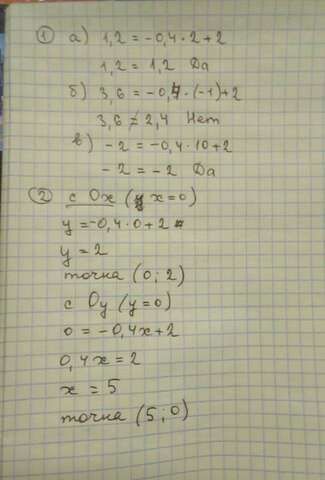 1 а) 1,2 = -0,4 · 2 + 2
1,2 = 1,2 Да
б) 3,6 = -0,4 · (-1) + 2
3,6 ≠ 2,4 Нет
в) -2 = -0,4 · 10 + 2
-2 = -2 Да
2 с Ox (x = 0)
y = -0,4 · 0 + 2
y = 2
точка (0; 2)
с Oy (y = 0)
0 = -0,4x + 2
0,4x = 2
x = 5
точка (5; 0)